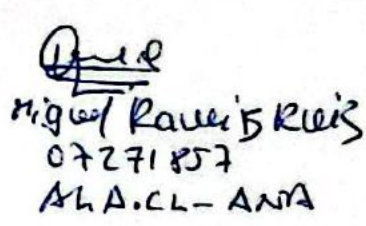 Miguel Ramirez Ruiz
07271857
ALA.CL - ANA